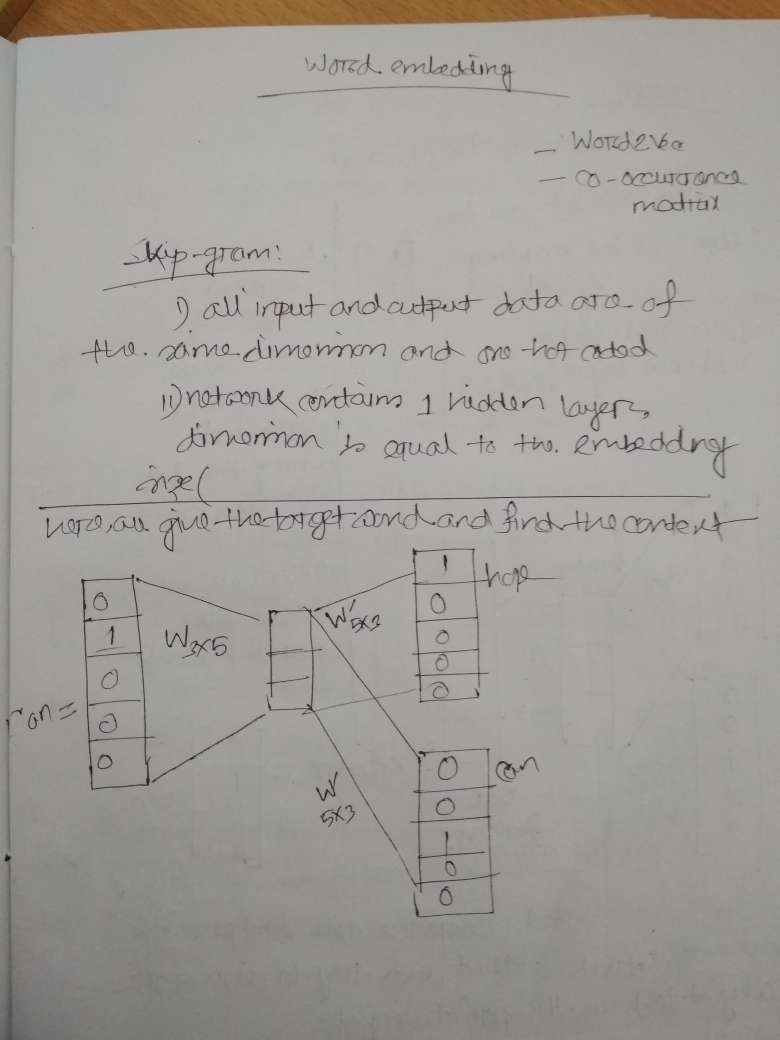 Word embedding
- Word2Vec
- co-occurrance
matrix
Skip-gram:
i) all input and output data are of
the same dimension and one hot coded
ii) network contains 1 hidden layers,
dimension is equal to the embedding
size(
here, we give the target word and find the context
0
1
0
0
0
W3x5
W'5x3
1
0
0
0
0
hope
can =
W'
5x3
0
0
1
0
0
can